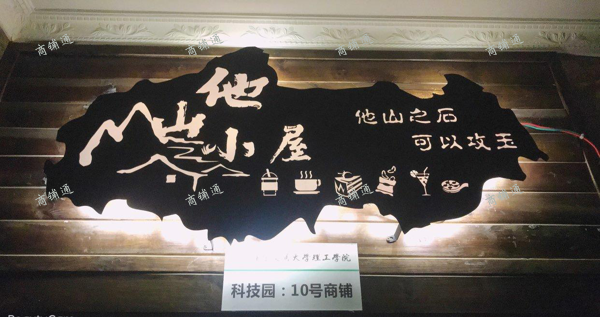 他山小屋
他山之石
可以攻玉
大学理工学院
科技园：10号商铺
商铺通
商铺通
商铺通
商铺通
商铺通
商铺通
商铺通
商铺通